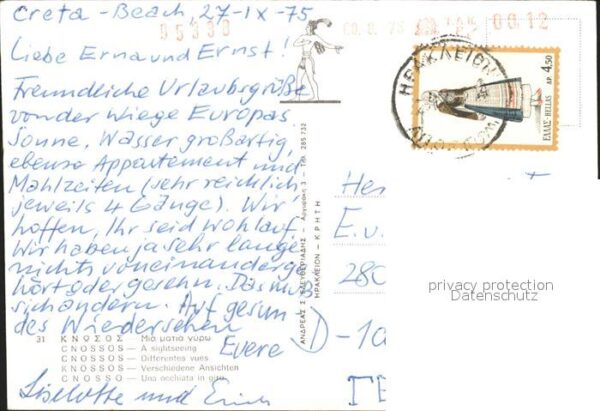 Creta-Beach 27-IX-75
05333
00.12
Liebe Erna und Ernst!
Freundliche Urlaubsgrüße
von der Wiege Europas.
Sonne, Wasser großartig,
ebenso Appartement und
Mahlzeiten (sehr reichlich
jeweils 4 Gänge). Wir
hoffen, Ihr seid wohlauf.
Wir haben ja sehr lange
nichts voneinander ge-
hört oder gesehn. Das muß
sich ändern. Auf gesun-
des Wiedersehen
Euere
Liselotte und Erich
31 ΚΝΩΣΟΣ — Μιά ματιά γύρω
CNOSSOS — A sightseeing
CNOSSOS — Differentes vues
KNOSSOS — Verschiedene Ansichten
CNOSSO — Una occhiata in giro
ΗΡΑΚΛΕΙΟΝ - ΚΡΗΤΗ
ΗΡΑΚΛΕΙΟΝ
ΕΛΛΑΣ-HELLAS
ΔΡ. 4,50
E. u.
280
D-10
privacy protection
Datenschutz